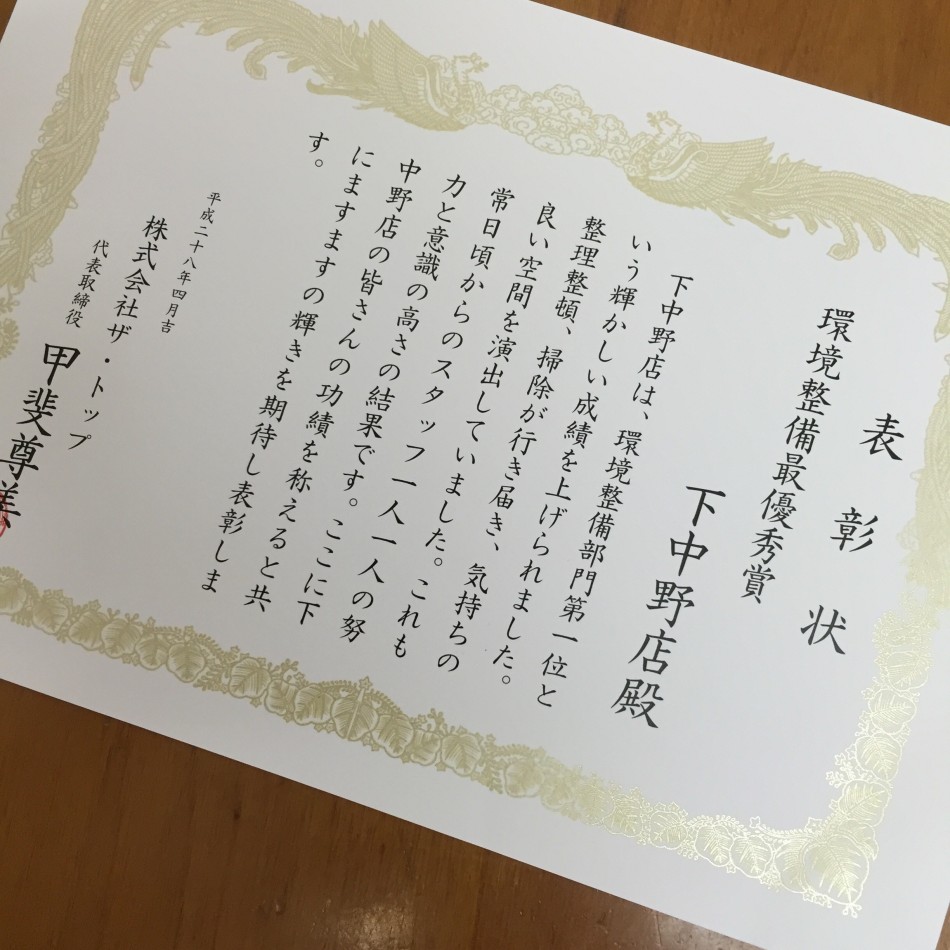 表彰状
環境整備最優秀賞
下中野店殿
下中野店は、環境整備部門第一位と
いう輝かしい成績を上げられました。
整理整頓、掃除が行き届き、気持ちの
良い空間を演出していました。これも
常日頃からのスタッフ一人一人の努
力と意識の高さの結果です。ここに下
中野店の皆さんの功績を称えると共
にますますの輝きを期待し表彰しま
す。
平成二十八年四月吉
株式会社ザ・トップ
代表取締役
甲斐尊美